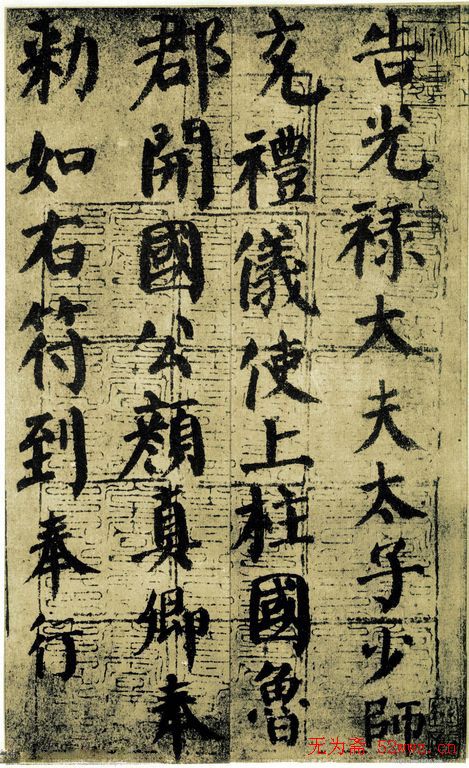 告光禄大夫太子少師
充禮儀使上柱國魯
郡開國公顔真卿奉
勅如右符到奉行
无为斋 52wwz.cn